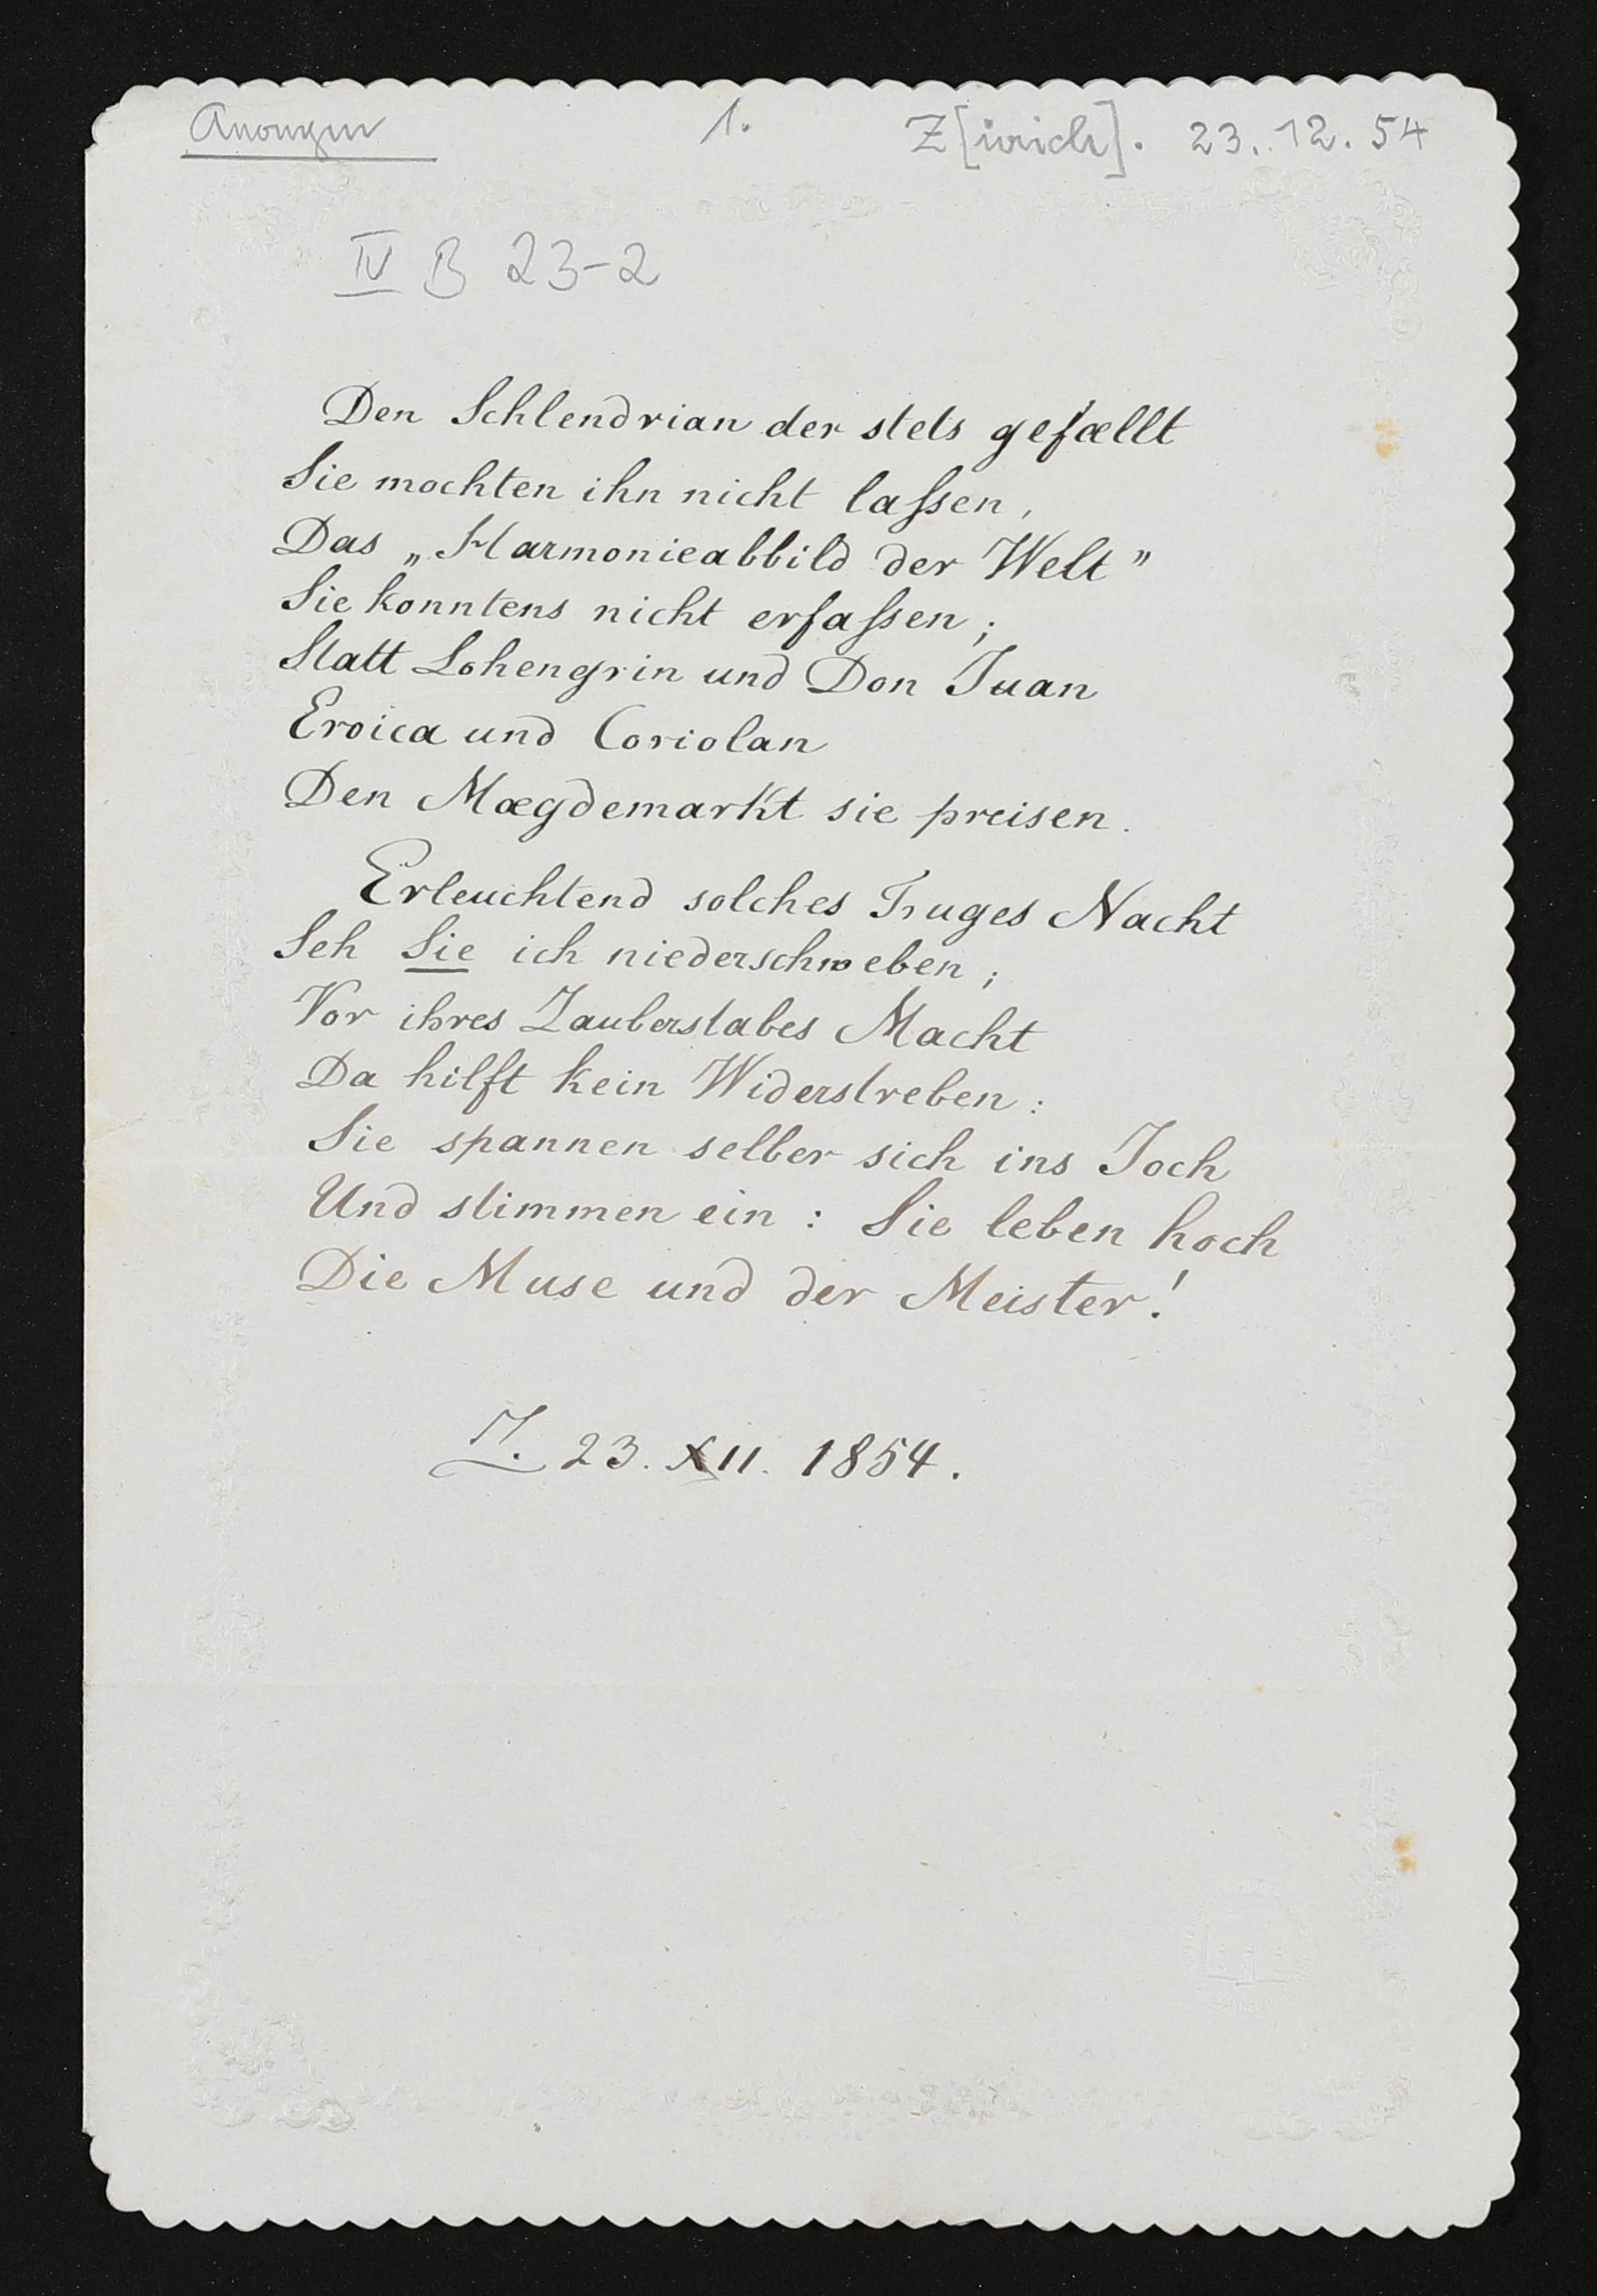 Anonym 1. Z[ürich]. 23.12.54
IV B 23-2
Den Schlendrian der stets gefællt
Sie mochten ihn nicht laſsen,
Das „Harmonieabbild der Welt"
Sie konntens nicht erfaſsen;
Statt Lohengrin und Don Juan
Eroica und Coriolan
Den Mægdemarkt sie preisen.
Erleuchtend solches Truges Nacht
Seh Sie ich niederschweben;
Vor ihres Zauberstabes Macht
Da hilft kein Widerstreben:
Sie spannen selber sich ins Joch
Und stimmen ein: Sie leben hoch
Die Muse und der Meister!
Z. 23. XII. 1854.